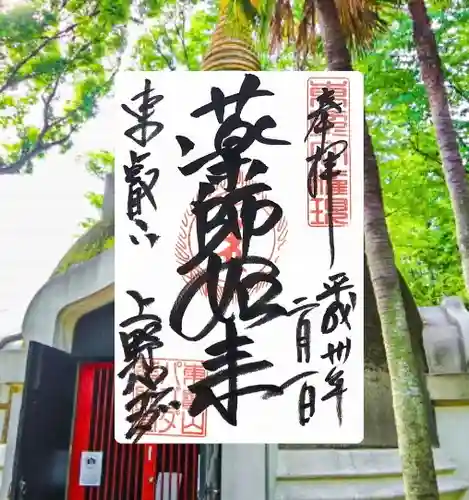 奉拝
平成卅年
二月一日
薬師如来
東叡山
上野パゴダ